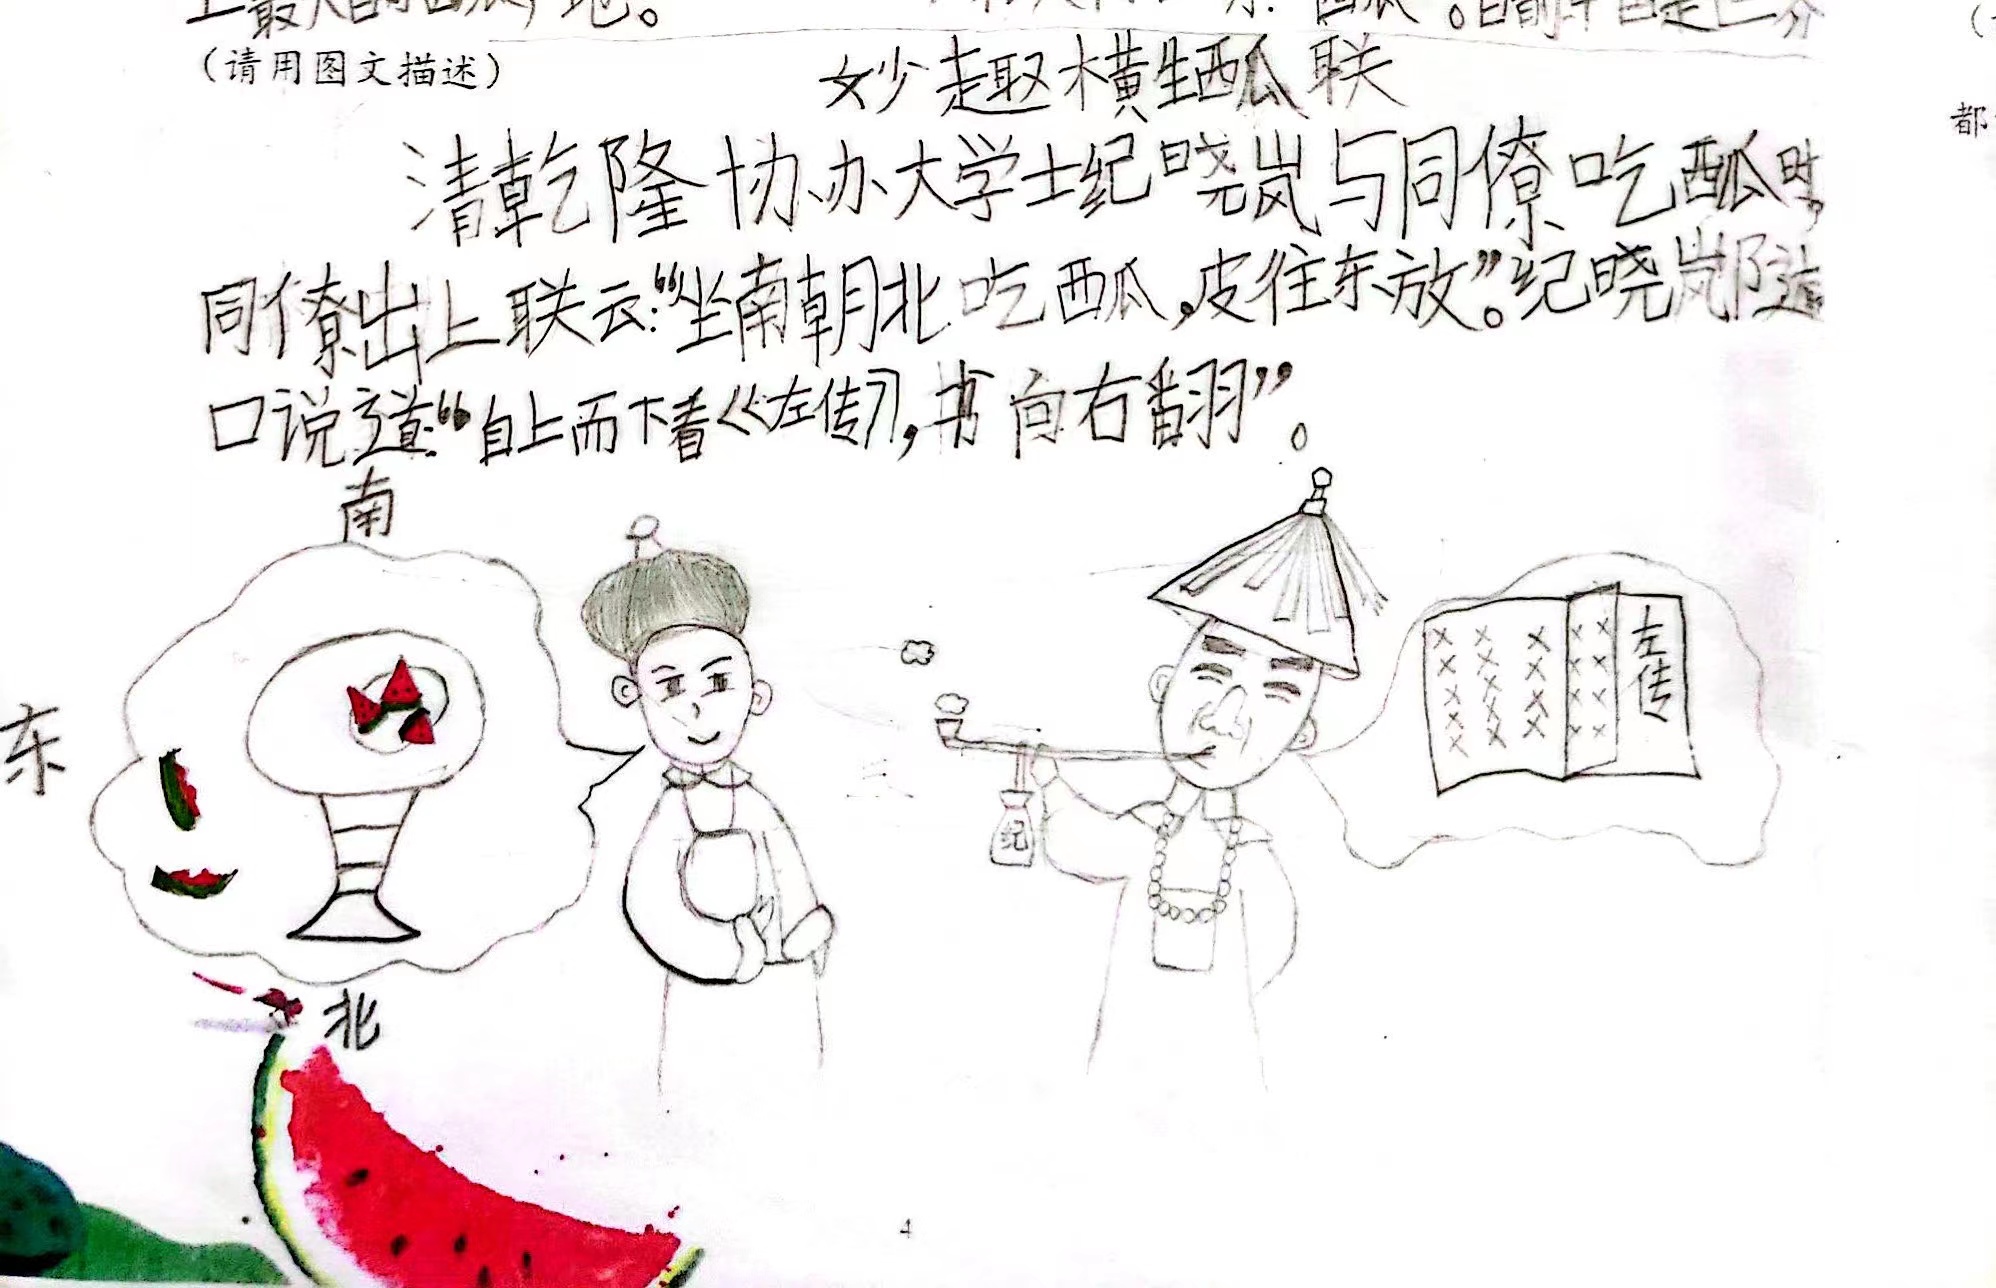 上最大的西瓜产地。
西瓜。目前
(请用图文描述)
妙趣横生西瓜联
都
清乾隆协办大学士纪晓岚与同僚吃西瓜时,
同僚出上联云:“坐南朝北吃西瓜,皮往东放”。纪晓岚随
口说道:“自上而下看《左传》,书向右翻”。
南
东
左传
纪
北
4